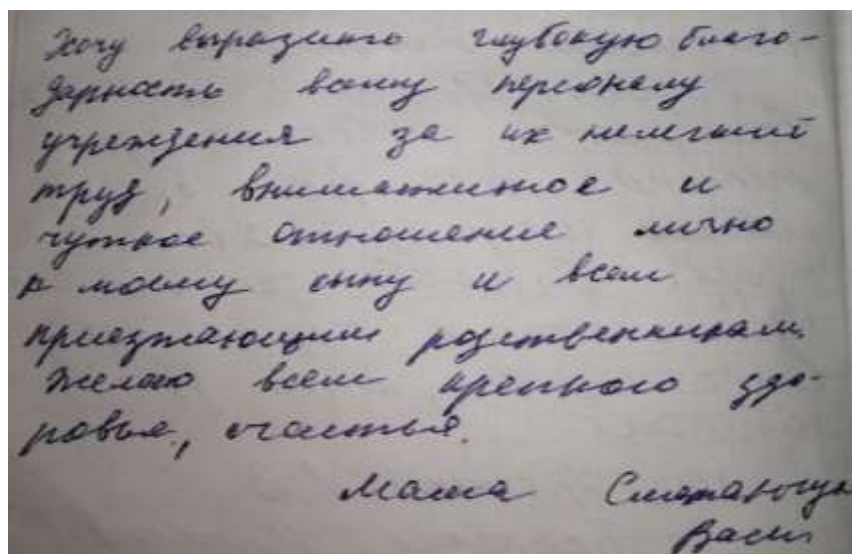 Хочу выразить глубокую благо-
дарность всему персоналу
учреждения за их нелегкий
труд, внимательное и
чуткое отношение лично
к моему сыну и всем
приезжающим родственникам.
Желаю всем крепкого здо-
ровья, счастья.
Мама
Васи